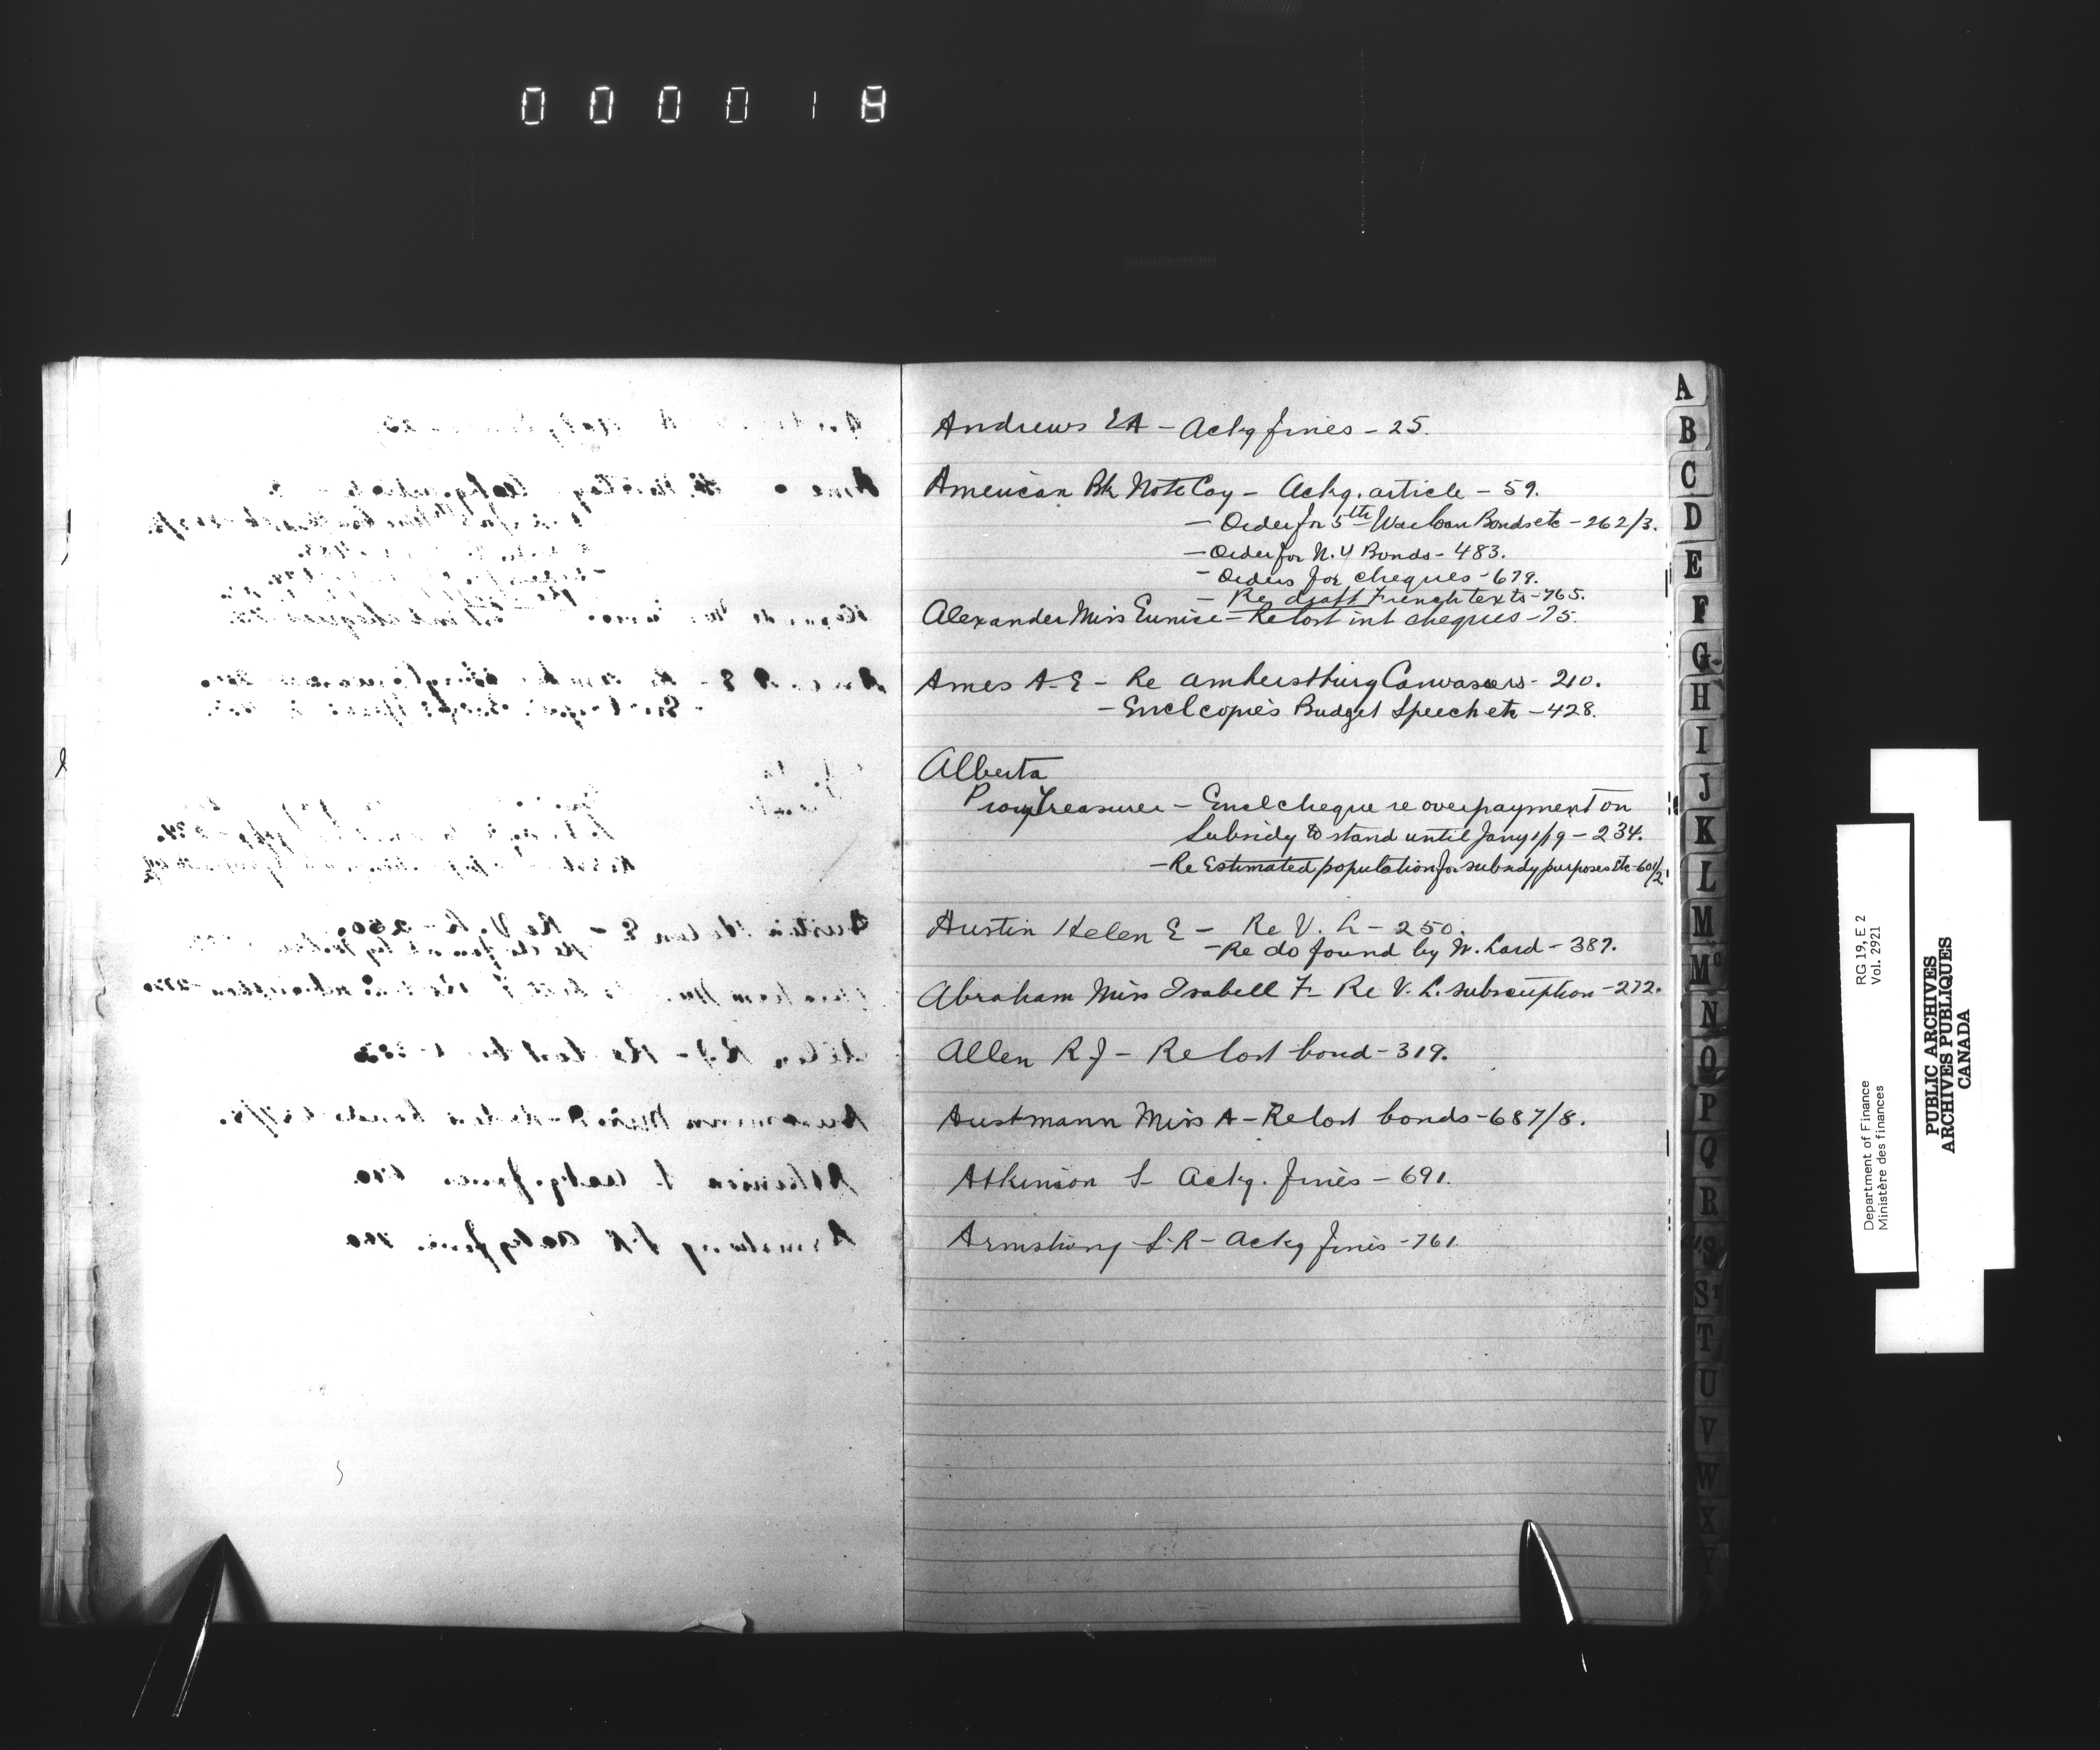 000018
Andrews EA - Ackg fines - 25.
American Bk Note Coy - Ackg. article - 59.
- Order for 5th War loan Bonds etc - 262/3.
- Order for N.Y Bonds - 483.
- Orders for cheques - 679.
- Re draft French texts - 765.
Alexander Miss Eunice - Re lost int cheques - 75.
Ames A.E - Re Amherstburg Canvassers - 210.
- Encl copies Budget Speech etc - 428.
Alberta
Prov Treasurer - Encl cheque re overpayment on
Subsidy to stand until Jany 1/19 - 234.
- Re Estimated population for subsidy purposes Etc - 601/2.
Austin Helen E - Re V. L - 250.
- Re do found by W. Lard - 387.
Abraham Miss Isabell F - Re V. L. subscription - 272.
Allen R J - Re lost bond - 319.
Austmann Miss A - Re lost bonds - 687/8.
Atkinson S - Ackg. fines - 691.
Armstrong S.R - Ackg fines - 761.
A
B
C
D
E
F
G
H
I
J
K
L
M
Mc
N
O
P
Q
R
S
T
U
V
W
X
Y
RG 19, E 2
Vol. 2921
Department of Finance
Ministère des finances
PUBLIC ARCHIVES
ARCHIVES PUBLIQUES
CANADA